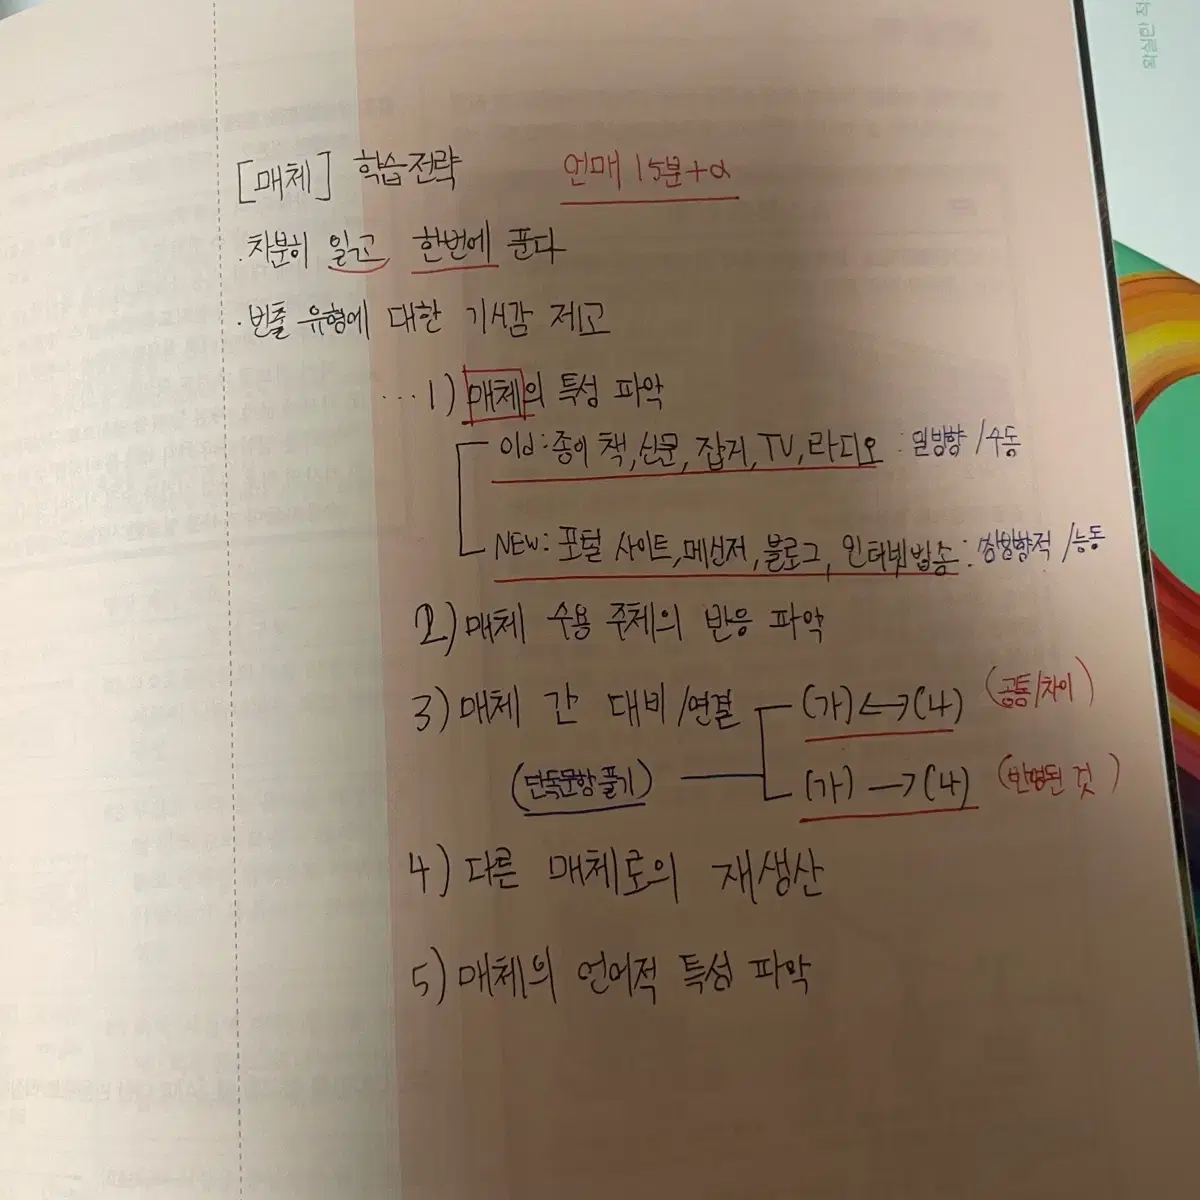 [매체] 학습전략 언매 15분+α
·차분히 읽고 한번에 푼다
·빈출 유형에 대한 기시감 제고
...1) 매체의 특성 파악
old: 종이 책, 신문, 잡지, TV, 라디오 : 일방향/수동
NEW: 포털 사이트, 메신저, 블로그, 인터넷방송 : 쌍방향적/능동
2) 매체 수용 주체의 반응 파악
3) 매체 간 대비/연결 (가)↔(나) (공통/차이)
(단독문항 풀기) (가)→(나) (반영된 것)
4) 다른 매체로의 재생산
5) 매체의 언어적 특성 파악